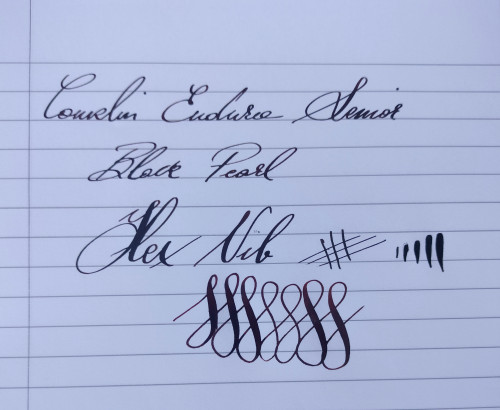 Conklin Endura Senior
Black Pearl
Flex Nib